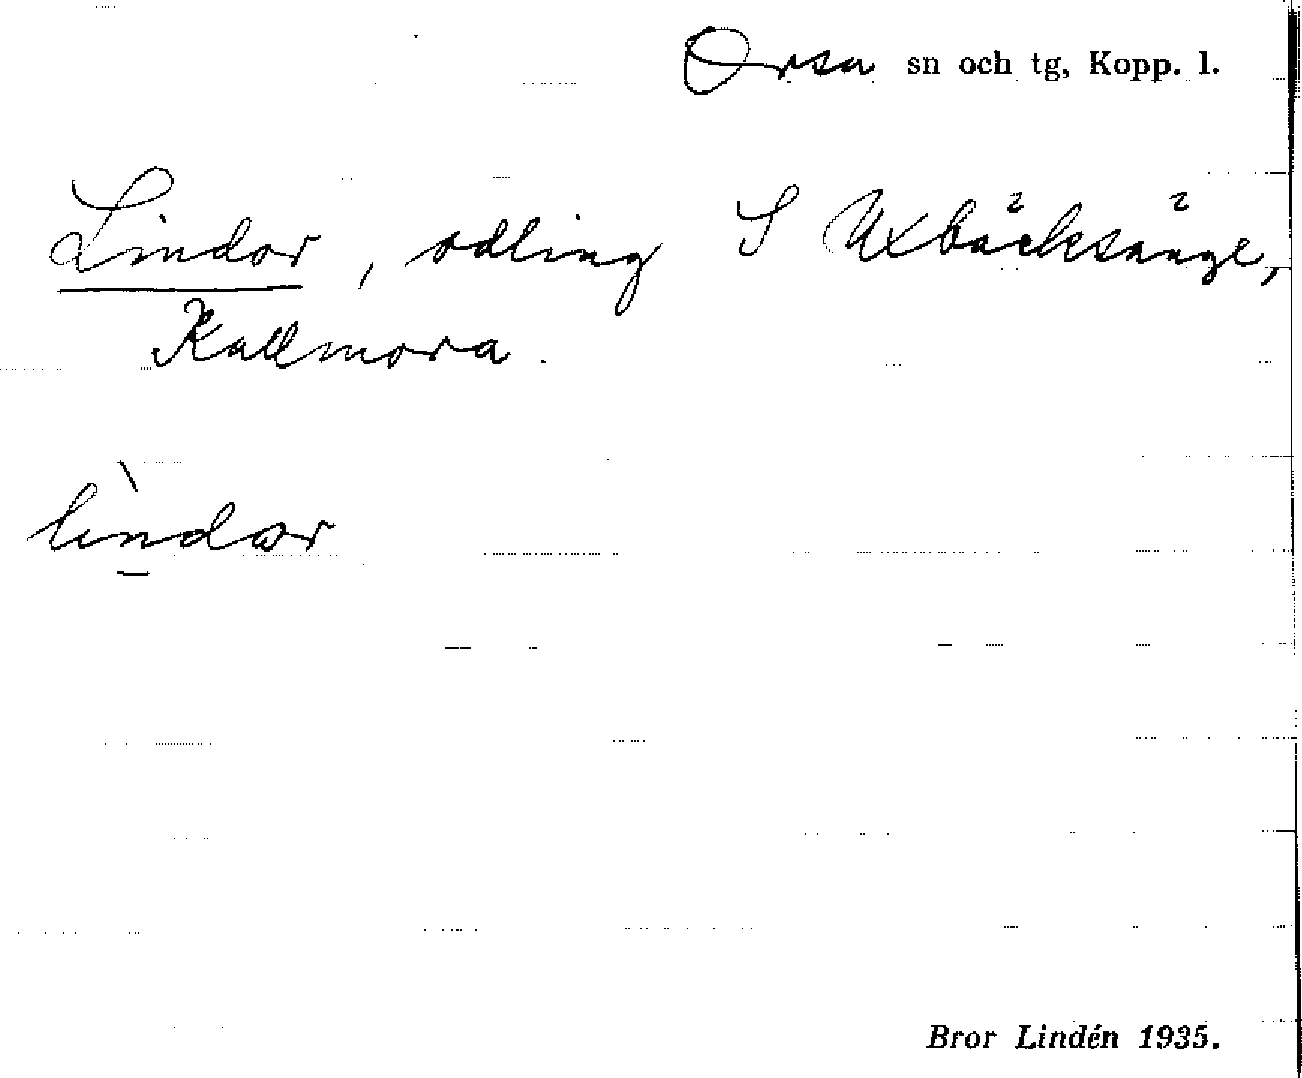 Orsa sn och tg, Kopp. l.
Lindor, odling S Uxbäcksänge,
Kallmora.
lìndar
Bror Lindén 1935.